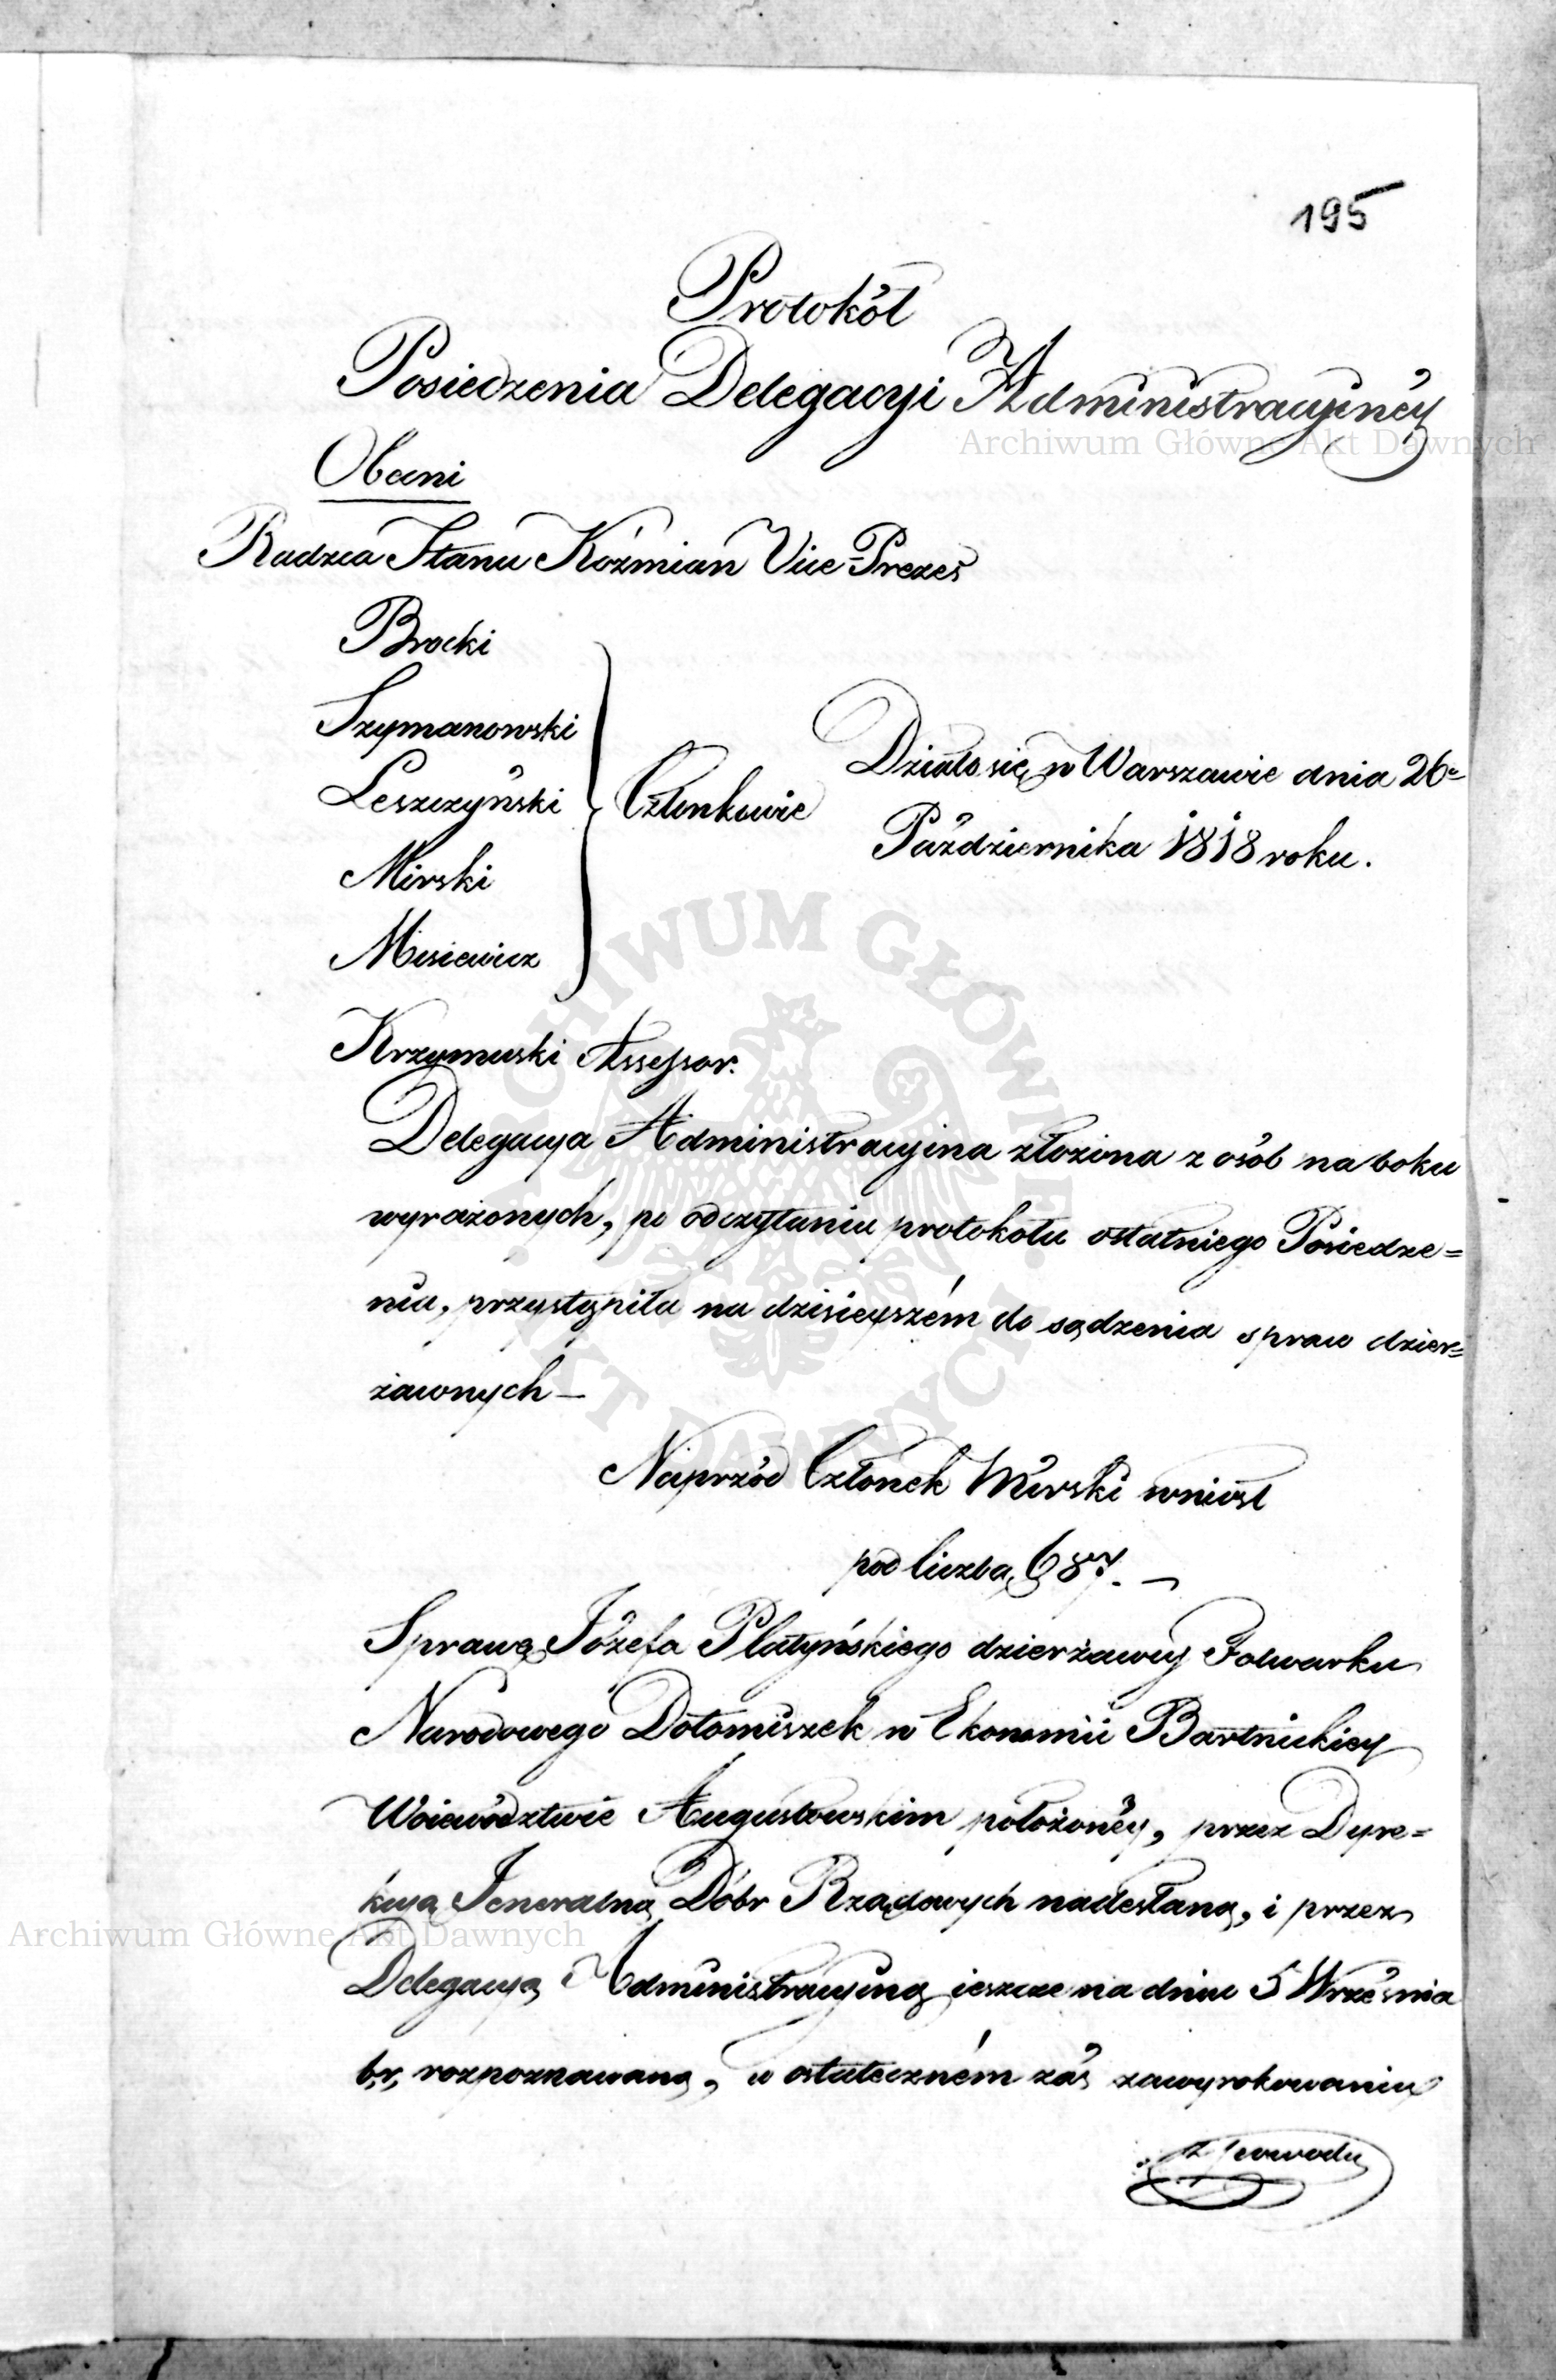 195
Protokół
Posiedzenia Delegacyi Administracyinéy
Obecni
Radzca Stanu Koźmian Vice-Prezes
Brocki
Szymanowski
Leszczyński
Mirski
Misiewicz
Członkowie
Działo się w Warszawie dnia 26º
Października 1818 roku.
Krzymuski Assessor.
Delegacya Administracyina złożona z osób na boku
wyrażonych, po odczytaniu protokołu ostatniego Posiedze=
nia, przystąpiła na dzisieyszém do sądzenia spraw dzier=
żawnych —
Naprzód Członek Mirski wniósł
pod liczbą 687. —
Sprawę Józefa Platyńskiego dzierżawcy Folwarku
Narodowego Dołomiszek w Ekonomii Bartnickiey
Woiewództwie Augustowskim położonéy, przez Dyre=
kcyą Jeneralną Dóbr Rządowych nadesłaną, i przez
Delegacyą Administracyiną ieszcze na dniu 5 Września
b.r. rozpoznawaną, w ostateczném zaś zawyrokowaniu
z powodu
Archiwum Główne Akt Dawnych
Archiwum Główne Akt Dawnych
ARCHIWUM GŁÓWNE AKT DAWNYCH